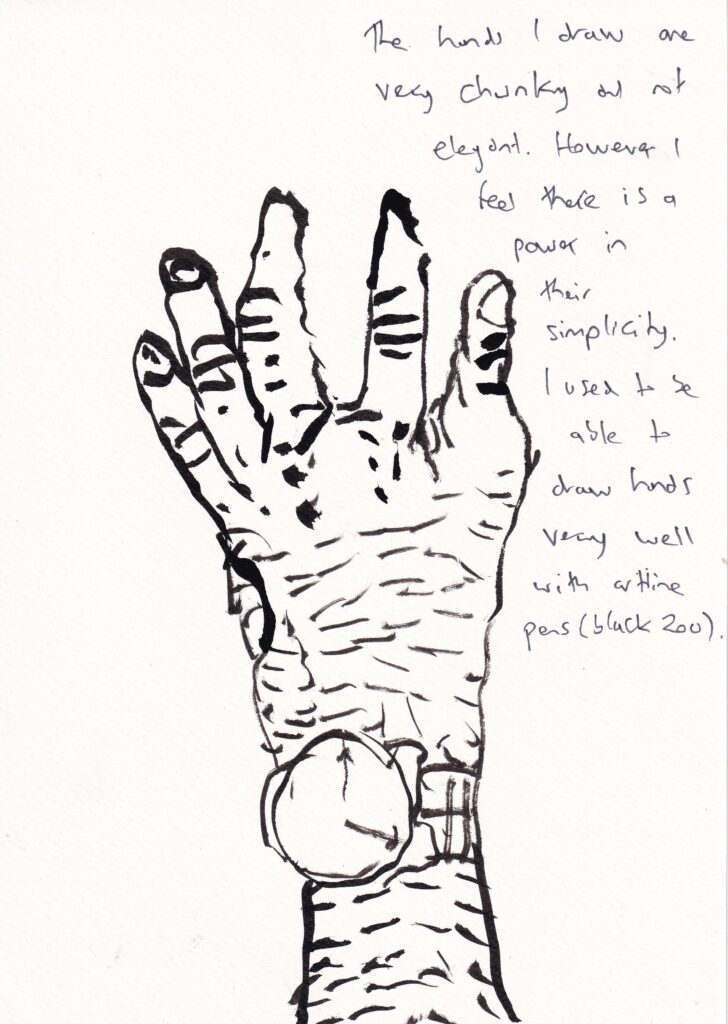 The hands I draw are
very chunky and not
elegant. However I
feel there is a
power in
their
simplicity.
I used to be
able to
draw hands
very well
with artline
pens (black 200).